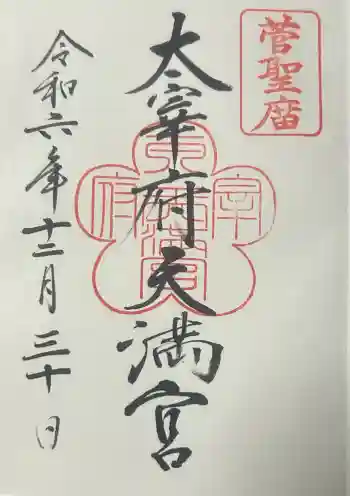 菅聖庿
太宰府天満宮
令和六年十二月三十日